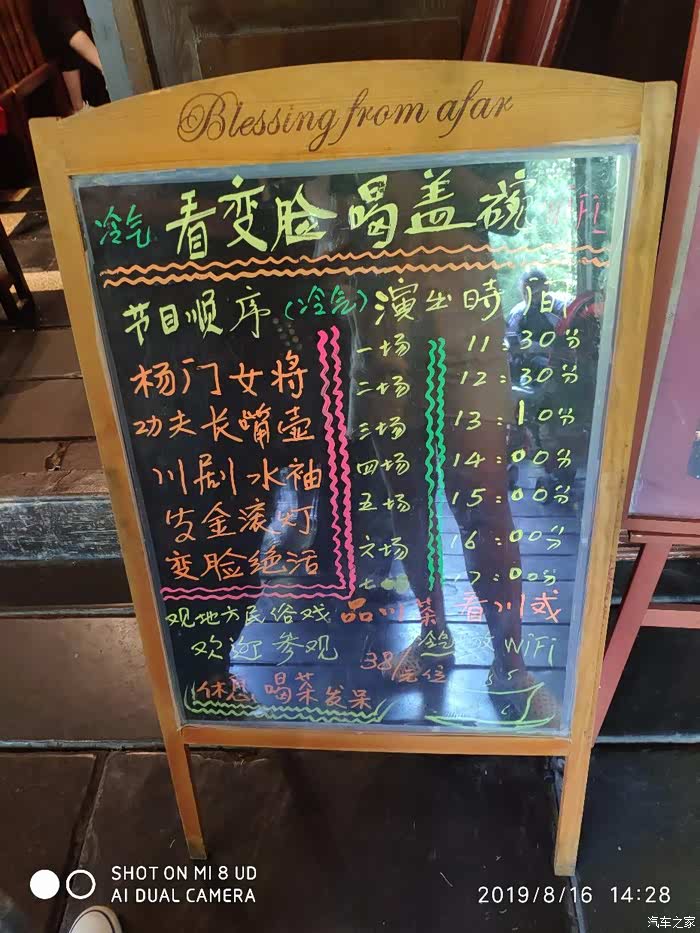 Blessing from afar
冷气 看变脸 喝盖碗 WiFi
节目顺序 (冷气) 演出時间
杨门女将
功夫长嘴壶
川剧水袖
变脸绝活
一场 11:30分
二场 12:30分
三场 13:10分
四场 14:00分
五场 15:00分
六场 16:00分
七 17:00分
观地方民俗戏 品川茶 看川戏
欢迎参观 38/元位 冷气 WiFi
休息 喝茶 发呆
SHOT ON MI 8 UD
AI DUAL CAMERA
2019/8/16 14:28
汽车之家